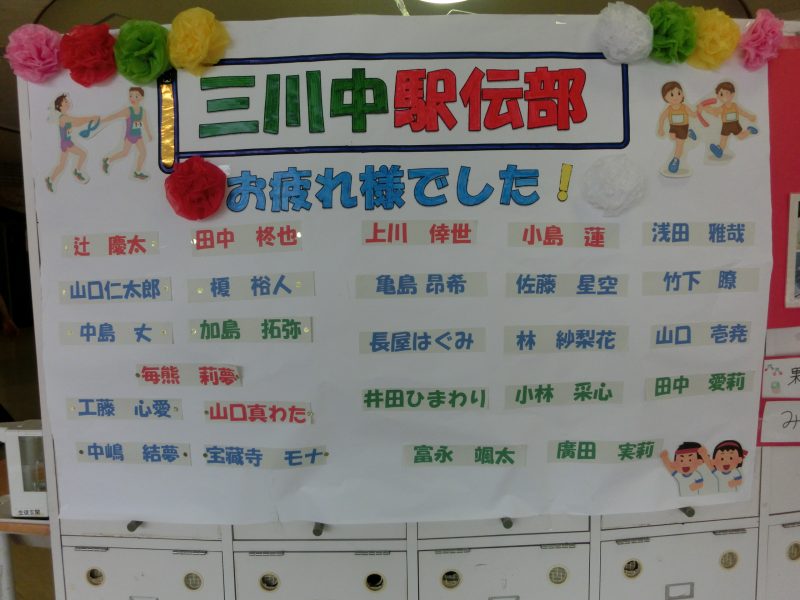 三川中駅伝部
お疲れ様でした!
辻 慶太 田中 柊也 上川 倖世 小島 蓮 浅田 雅哉
山口仁太郎 榎 裕人 亀島 昂希 佐藤 星空 竹下 瞭
中島 丈 加島 拓弥 長屋はぐみ 林 紗梨花 山口 壱尭
毎熊 莉夢
工藤 心愛 山口真わた 井田ひまわり 小林 采心 田中 愛莉
中嶋 結夢 宝蔵寺 モナ 富永 颯太 廣田 実莉
み